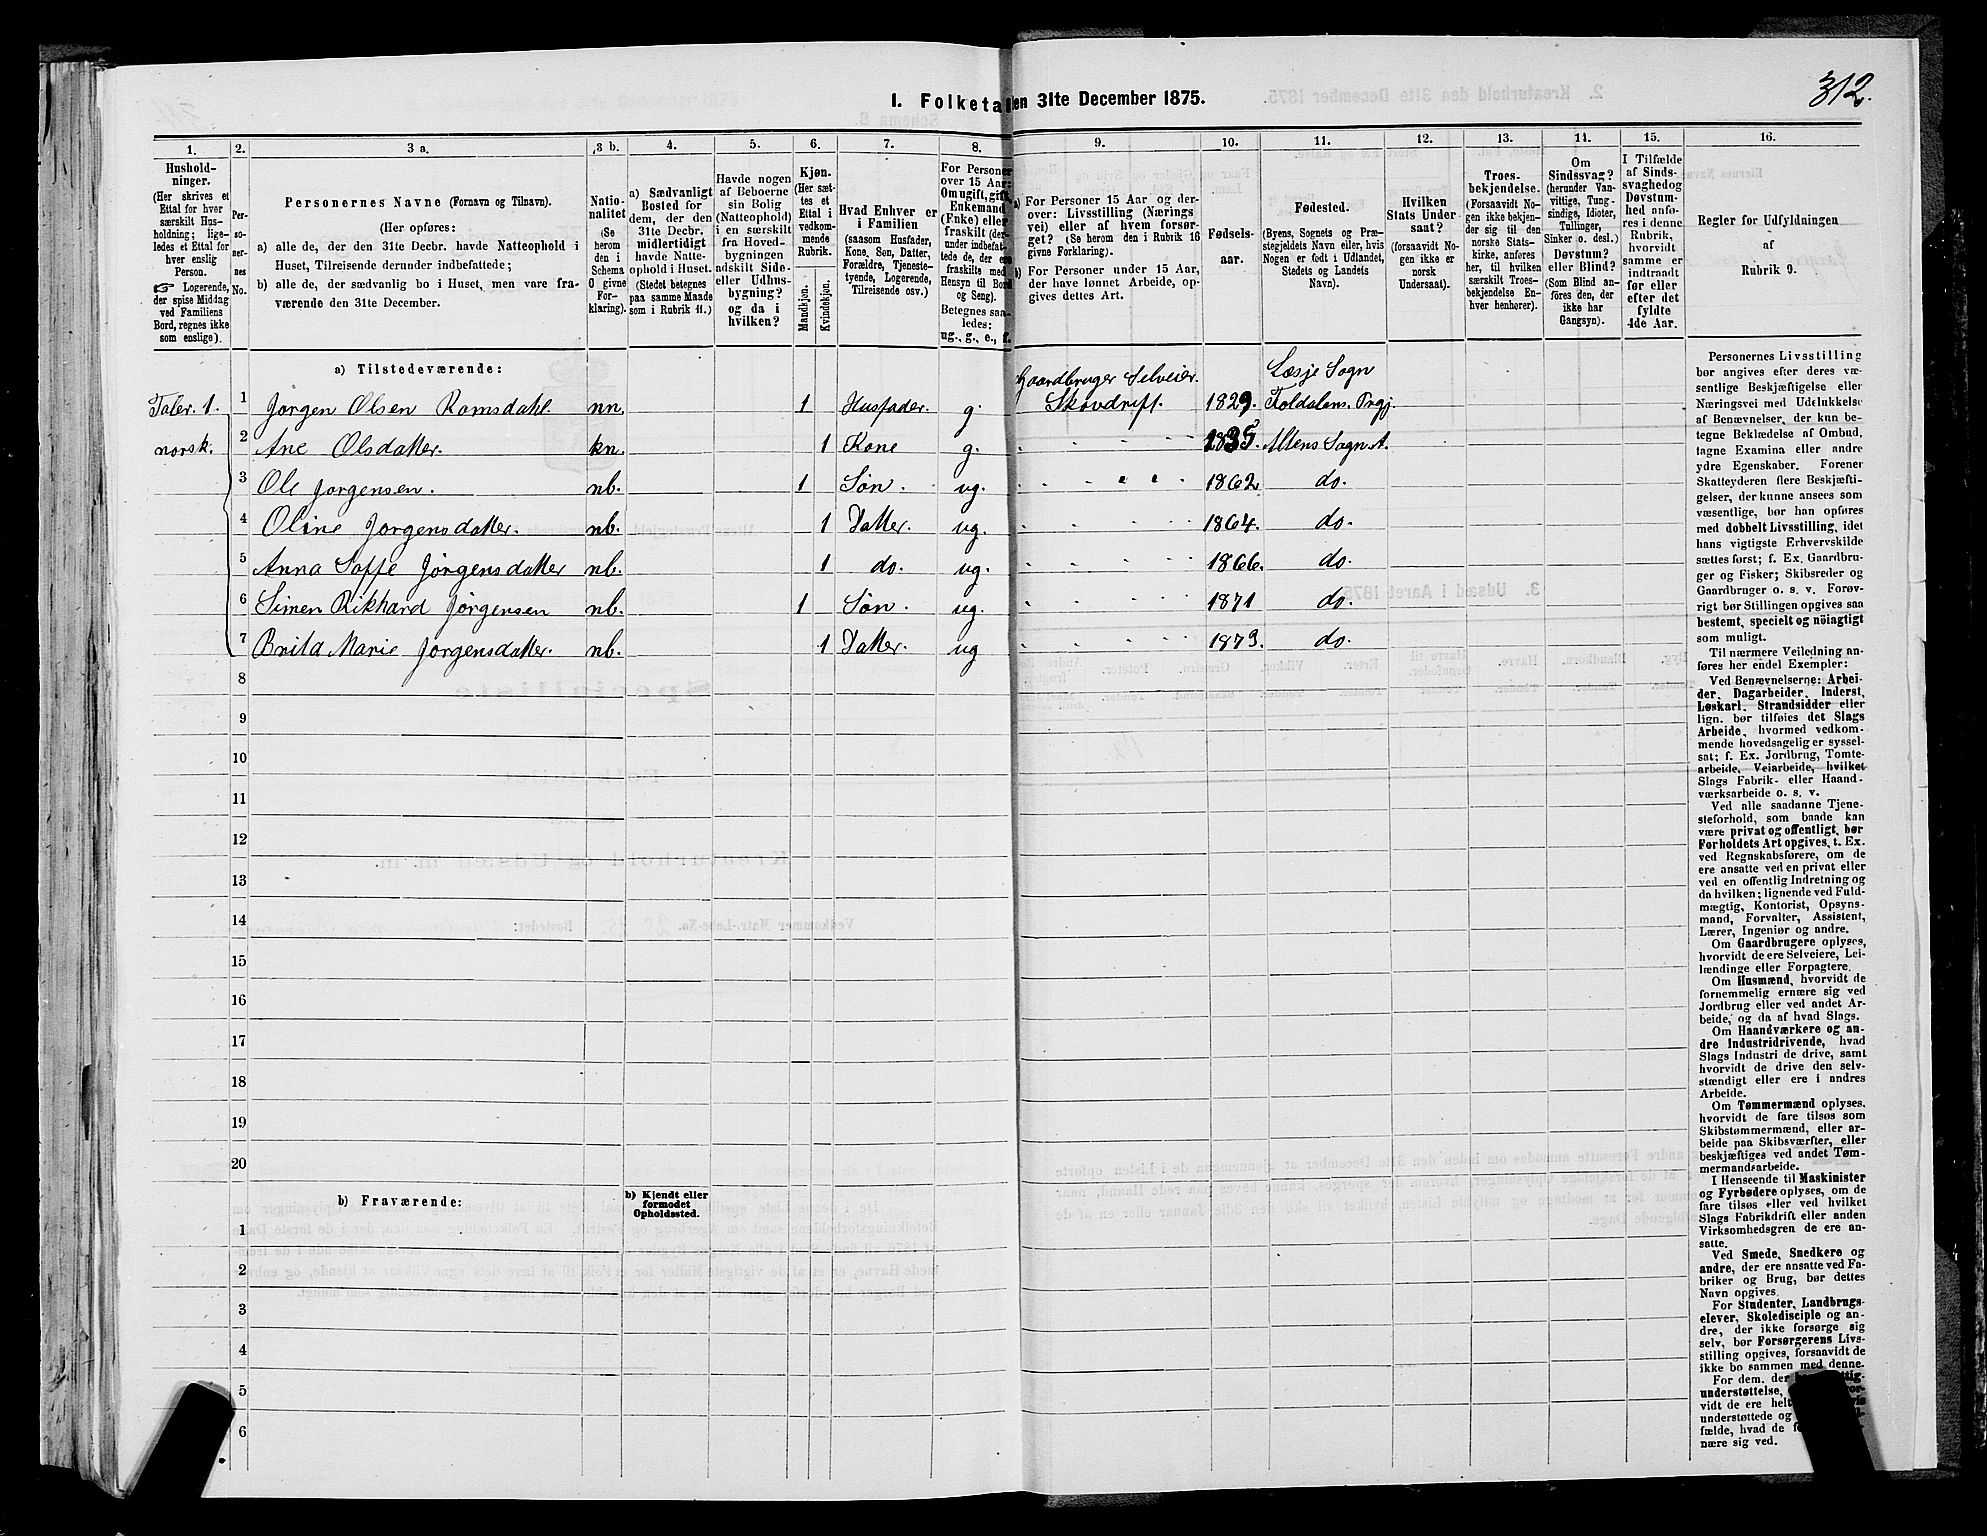 312.
I. Folketal den 31te December 1875.
1. 2. 3 a. 3 b. 4. 5. 6. 7. 8. 9. 10. 11. 12. 13. 14. 15. 16.
Hushold-
ninger.
(Her skrives et
Ettal for hver
særskilt Hus-
holdning; lige-
ledes et Ettal for
hver enslig
Person.
☞ Logerende,
der spise Middag
ved Familiens
Bord, regnes ikke
som enslige).
Per-
so-
ner-
nes
No.
Personernes Navne (Fornavn og Tilnavn).
(Her opføres:
a) alle de, der den 31te Decbr. havde Natteophold i
Huset, Tilreisende derunder indbefattede;
b) alle de, der sædvanlig bo i Huset, men vare fra-
værende den 31te December.
Natio-
nalitet
(Se
herom
den i
Schema
0 givne
For-
klaring).
a) Sædvanligt
Bosted for
dem, der den
31te Decbr.
midlertidigt
havde Natte-
ophold i Huset.
(Stedet betegnes
paa samme Maade
som i Rubrik 11.)
Havde nogen
af Beboerne
sin Bolig
(Natteophold)
i en særskilt
fra Hoved-
bygningen
adskilt Side-
eller Udhus-
bygning?
og da i
hvilken?
Kjøn.
(Her sæt-
tes et
Ettal i
vedkom-
mende
Rubrik.
Mandkjøn.
Kvindekjøn.
Hvad Enhver er
i Familien
(saasom Husfader,
Kone, Søn, Datter,
Forældre, Tjeneste-
tyende, Logerende,
Tilreisende osv.)
For Personer
over 15 Aar:
Om ugift, gift,
Enkemand
(Enke) eller
fraskilt (der-
under indbefat-
tede de, der ere
fraskilte med
Hensyn til Bord
og Seng).
Betegnes saa-
ledes:
ug., g., e., f.
a) For Personer 15 Aar og der-
over: Livsstilling (Nærings
vei) eller af hvem forsør-
get? (Se herom den i Rubrik 16
givne Forklaring).
b) For Personer under 15 Aar,
der have lønnet Arbeide, op-
gives dettes Art.
Fødsels-
aar.
Fødested.
(Byens, Sognets og Præ-
stegjeldets Navn eller, hvis
Nogen er født i Udlandet,
Stedets og Landets
Navn).
Hvilken
Stats Under-
saat?
(forsaavidt No-
gen ikke er
norsk
Undersaat).
Troes-
bekjendelse.
(Forsaavidt No-
gen ikke bekjen-
der sig til den
norske Stats-
kirke, anføres
her, til hvilken
særskilt Troes-
bekjendelse En-
hver henhører).
Om
Sindssvag?
(herunder Van-
vittige, Tung-
sindige, Idioter,
Tullinger,
Sinker o. desl.)
Døvstum?
eller Blind?
(Som Blind an-
føres den, der
ikke har
Gangsyn).
I Tilfælde
af Sinds-
svaghedog
Døvstum-
hed anfø-
res i denne
Rubrik,
hvorvidt
samme er
indtraadt
før eller
efter det
fyldte
4de Aar.
Regler for Udfyldningen
af
Rubrik 9.
a) Tilstedeværende:
Taler. 1.
norsk.
1 Jørgen Olsen Romsdahl. nn. 1 Husfader. g. Gaardbruger Selveier. Skovdrift. 1829. Læsje Sogn Foldalens Prgj.
2 Ane Olsdatter. kn. 1 Kone g. 1835 Altens Sogn. A.
3 Ole Jørgensen. nb. 1 Søn. ug. 1862 do.
4 Oline Jørgensdatter. nb. 1 Datter. ug. 1864. do.
5 Anna Soffe Jørgensdatter nb. 1 do. ug. 1866. do.
6 Simen Rikhard Jørgensen nb. 1 Søn. ug. 1871 do.
7 Brita Marie Jørgensdatter. nb. 1 Datter. ug 1873. do.
8
9
10
11
12
13
14
15
16
17
18
19
20
b) Fraværende:
b) Kjendt eller
formodet
Opholdssted.
1
2
3
4
5
6
Personernes Livsstilling
bør angives efter deres væ-
sentlige Beskjæftigelse eller
Næringsvei med Udelukkelse
af Benævnelser, der kun be-
tegne Beklædelse af Ombud,
tagne Examina eller andre
ydre Egenskaber. Forener
Skatteyderen flere Beskjæfti-
gelser, der kunne ansees som
væsentlige, bør han opføres
med dobbelt Livsstilling, idet
hans vigtigste Erhvervskilde
sættes først; f. Ex. Gaardbru-
ger og Fisker; Skibsreder og
Gaardbruger o. s. v. Forøv-
rigt bør Stillingen opgives saa
bestemt, specielt og nöiagtigt
som muligt.
Til nærmere Veiledning an-
føres her endel Exempler:
Ved Benævnelserne: Arbei-
der, Dagarbeider, Inderst,
Løskarl, Strandsidder eller
lign. bør tilføies det Slags
Arbeide, hvormed vedkom-
mende hovedsagelig er syssel-
sat; f. Ex. Jordbrug, Tomte-
arbeide, Veiarbeide, hvilket
Slags Fabrik- eller Haand-
værksarbeide o. s. v.
Ved alle saadanne Tjene-
steforhold, som baade kan
være privat og offentligt, bør
Forholdets Art opgives, t. Ex.
ved Regnskabsførere, om de
ere ansatte ved en privat eller
ved en offentlig Indretning og
da hvilken; lignende ved Fuld-
mægtig, Kontorist, Opsyns-
mand, Forvalter, Assistent,
Lærer, Ingeniør og andre.
Om Gaardbrugere oplyses,
hvorvidt de ere Selveiere, Lei-
lændinge eller Forpagtere.
Om Husmænd, hvorvidt de
fornemmelig ernære sig ved
Jordbrug eller ved andet Ar-
beide, og da af hvad Slags.
Om Haandværkere og an-
dre Industridrivende, hvad
Slags Industri de drive, samt
hvorvidt de drive den selv-
stændigt eller ere i andres
Arbeide.
Om Tømmermænd oplyses,
hvorvidt de fare tilsøs som
Skibstømmermænd, eller ar-
beide paa Skibsværfter, eller
beskjæftiges ved andet Tøm-
mermandsarbeide.
I Henseende til Maskinister
og Fyrbødere oplyses, om de
fare tilsøs eller ved hvilket
Slags Fabrikdrift eller anden
Virksomhedsgren de ere an-
satte.
Ved Smede, Snedkere og
andre, der ere ansatte ved Fa-
briker og Brug, bør dettes
Navn opgives.
For Studenter, Landbrugs-
elever, Skoledisciple og an-
dre, der ikke forsørge sig
selv, bør Forsørgerens Livs-
stilling opgives, forsaavidt de
ikke bo sammen med denne.
For dem, der
understøttelse,
vidt de ere helt
understøttede og
fælde, hvad de
nære sig ved.